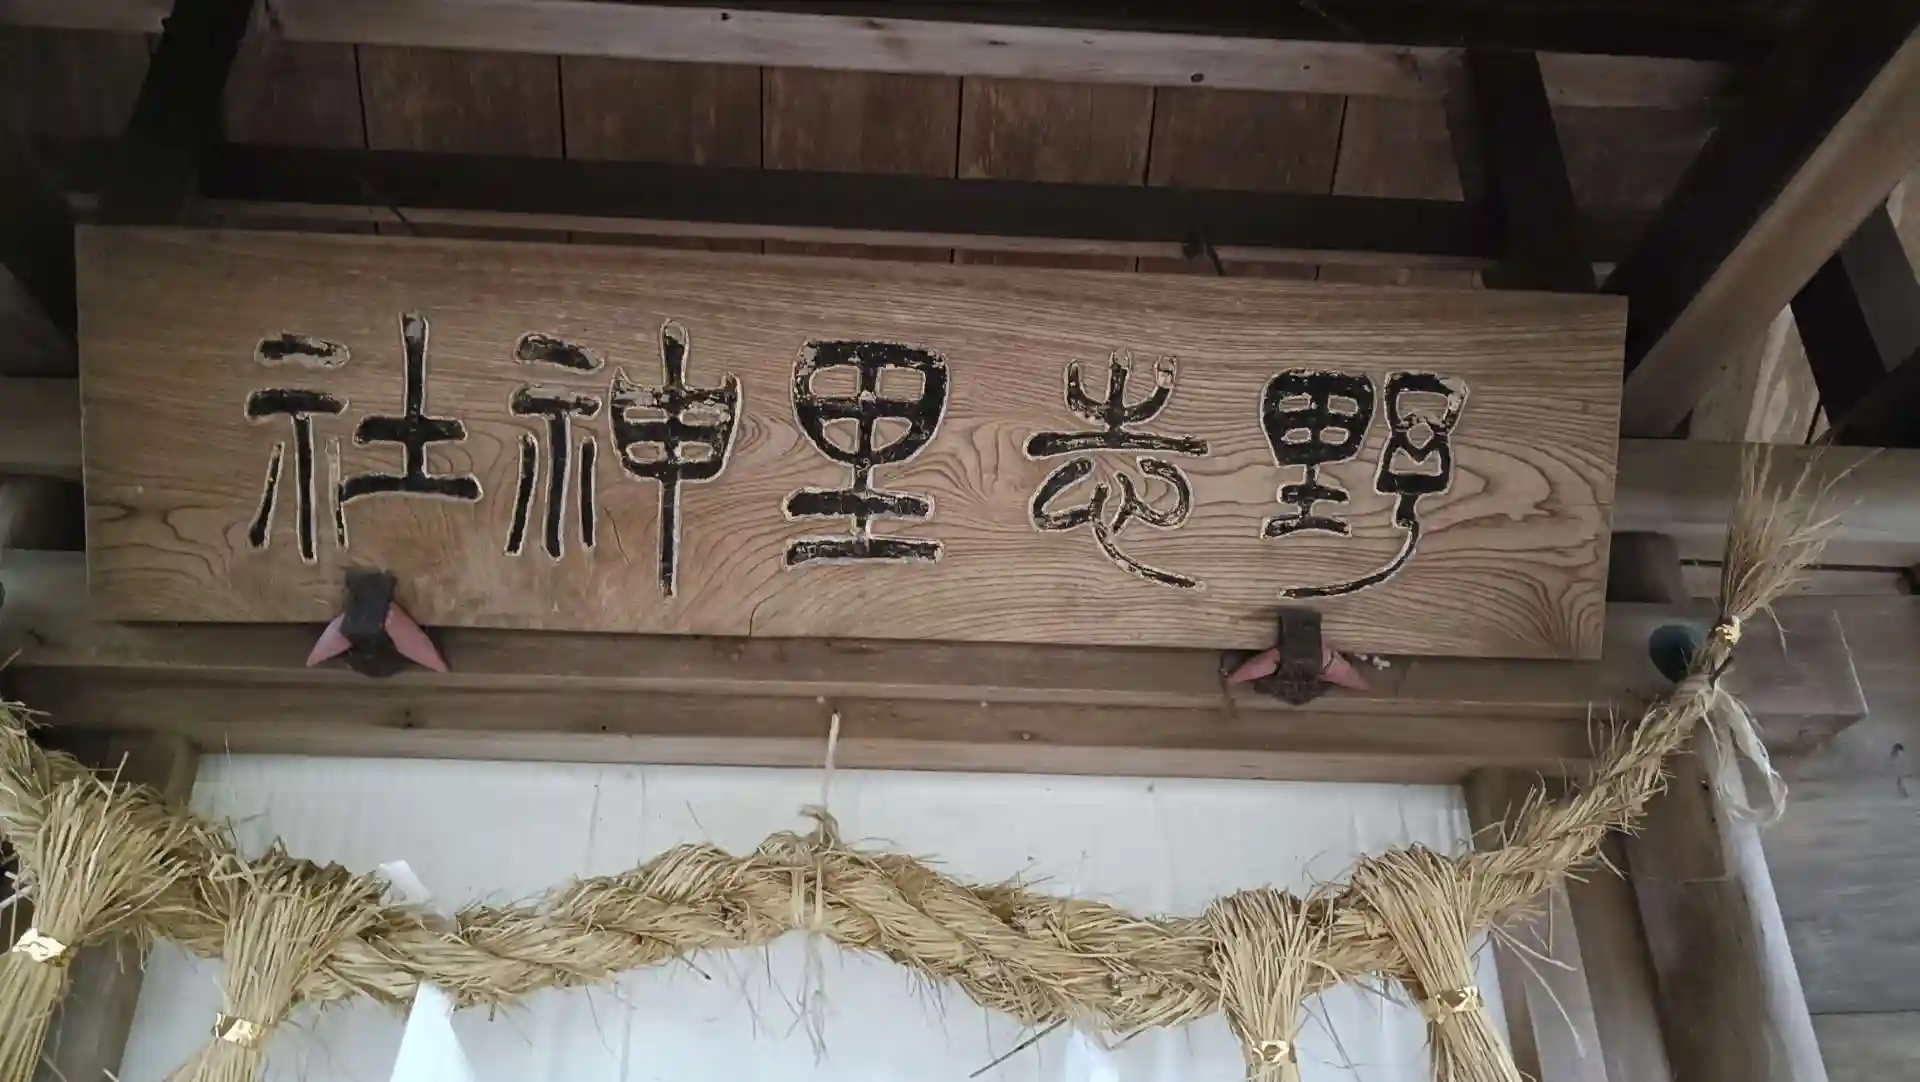 野志里神社